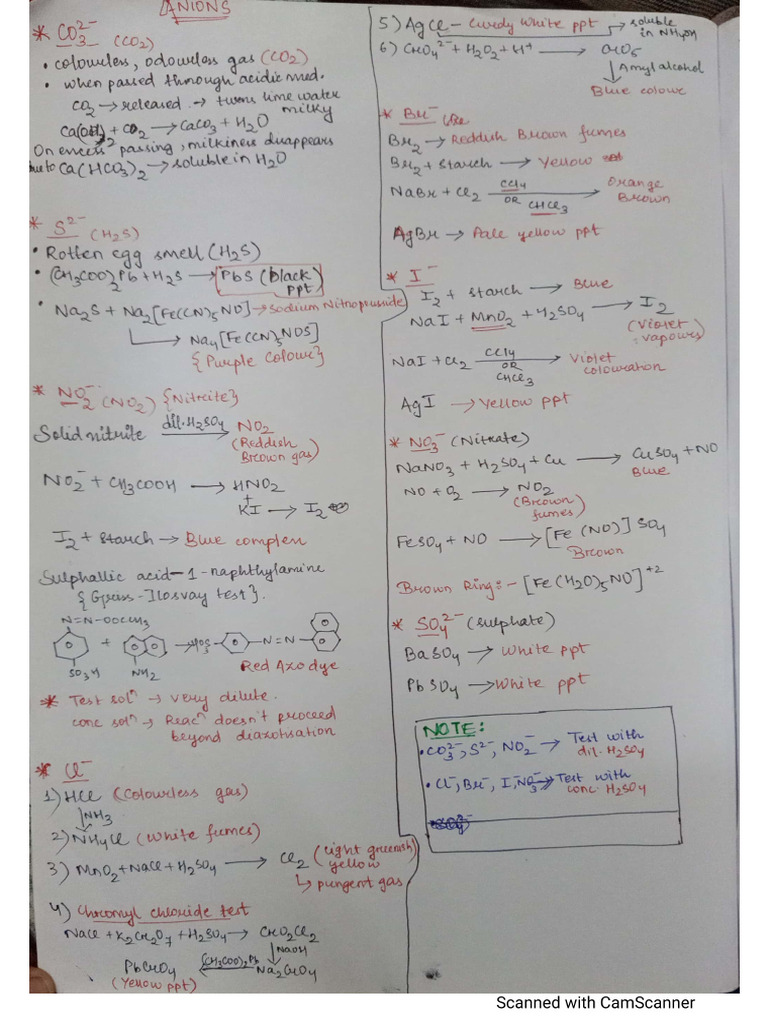 ANIONS
* CO3^2- (CO2)
• colourless, odourless gas (CO2)
• when passed through acidic med.
CO2 → released → turns lime water milky
Ca(OH)2 + CO2 → CaCO3 + H2O
On excess passing, milkiness disappears
due to Ca(HCO3)2 → soluble in H2O
* S^2- (H2S)
• Rotten egg smell (H2S)
• (CH3COO)2Pb + H2S → PbS (black ppt)
• Na2S + Na2[Fe(CN)5NO] → Sodium Nitroprusside
→ Na4[Fe(CN)5NOS]
{Purple colour}
* NO2^- (NO2) {Nitrite}
Solid nitrite dil. H2SO4 → NO2
(Reddish Brown gas)
NO2^- + CH3COOH → HNO2
+
KI → I2
I2 + starch → Blue complex
Sulphallic acid - 1 - naphthylamine
{Griess - Ilosvay test}.
N=N-OOCCH3
+ → HO3S- -N=N-
SO3H NH2 Red Azo dye
* Test solⁿ → very dilute.
conc solⁿ → Reacⁿ doesn't proceed
beyond diazotisation
* Cl^-
1) HCl (Colourless gas)
↓ NH3
2) NH4Cl (White fumes)
3) MnO2 + NaCl + H2SO4 → Cl2 (light greenish yellow
↳ pungent gas
4) Chromyl chloride test
NaCl + K2Cr2O7 + H2SO4 → CrO2Cl2
↓ NaOH
PbCrO4 ← (CH3COO)2Pb Na2CrO4
(Yellow ppt)
5) AgCl - Curdy white ppt → soluble in NH4OH
6) CrO4^2- + H2O2 + H+ → CrO5
↓ Amyl alcohol
Blue colour
* Br^-
Br2 → Reddish Brown fumes
Br2 + starch → Yellow
NaBr + Cl2 CCl4 OR CHCl3 → Orange Brown
AgBr → Pale yellow ppt
* I^-
I2 + starch → Blue
NaI + MnO2 + H2SO4 → I2
(Violet vapours)
NaI + Cl2 CCl4 OR CHCl3 → Violet colouration
AgI → Yellow ppt
* NO3^- (Nitrate)
NaNO3 + H2SO4 + Cu → CuSO4 + NO
Blue
NO + O2 → NO2
(Brown fumes)
FeSO4 + NO → [Fe(NO)]SO4
Brown
Brown Ring:- [Fe(H2O)5NO]^+2
* SO4^2- (sulphate)
BaSO4 → White ppt
PbSO4 → White ppt
NOTE:
• CO3^2-, S^2-, NO2^- → Test with dil. H2SO4
• Cl^-, Br^-, I^-, NO3^- → Test with conc. H2SO4
Scanned with CamScanner